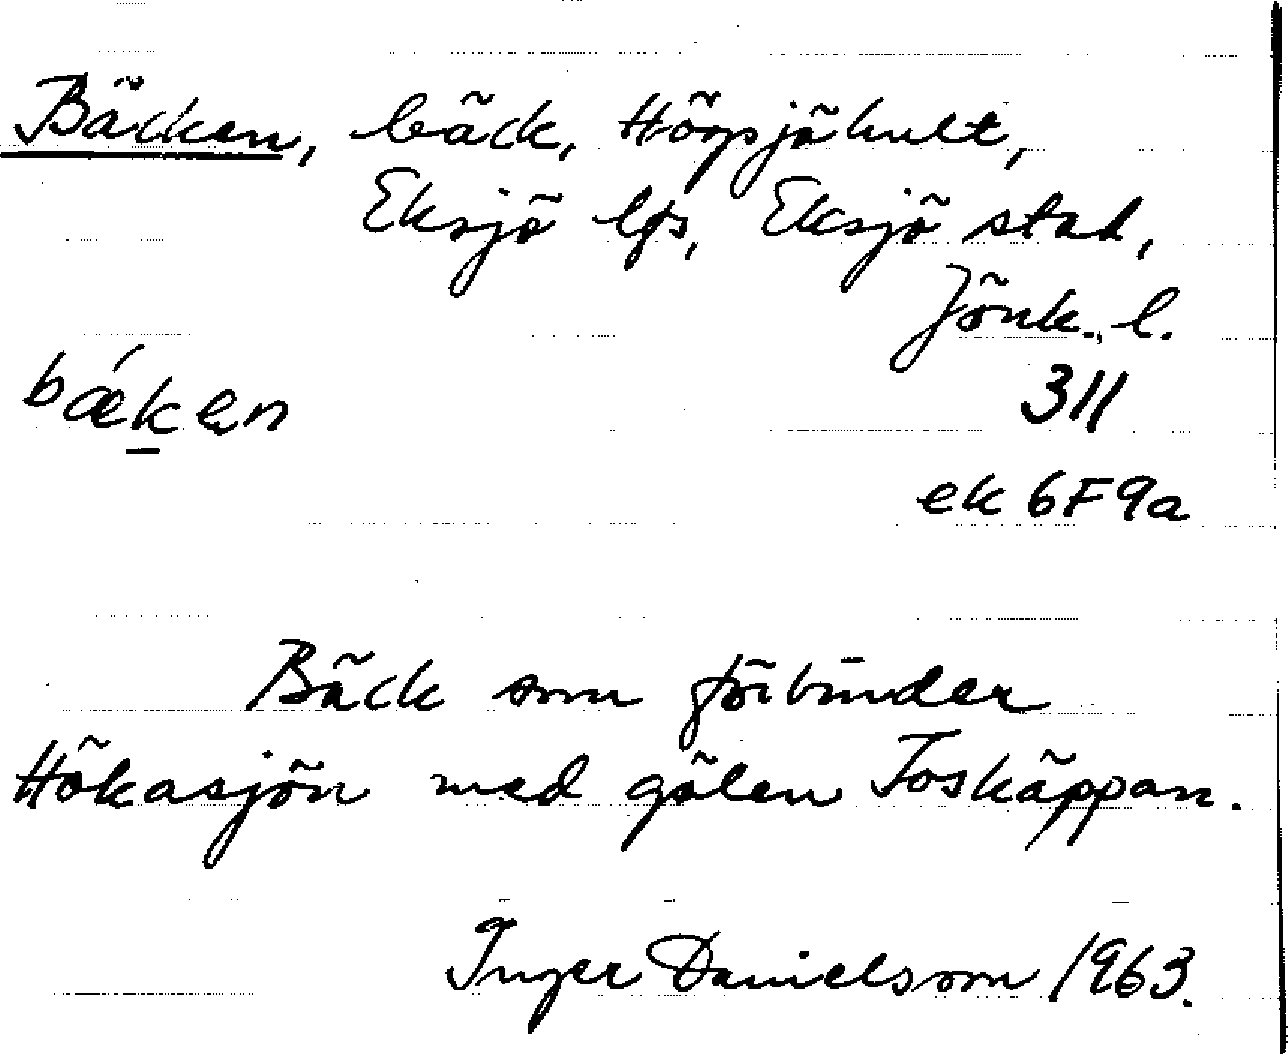 Bäcken, bäck, Högsjöhult,
Eksjö lfs, Eksjö stad,
Jönk. l.
bǽken
311
ek 6F9a
Bäck som förbinder
Hökasjön med gölen Toskäppan.
Inger Danielsson 1963.